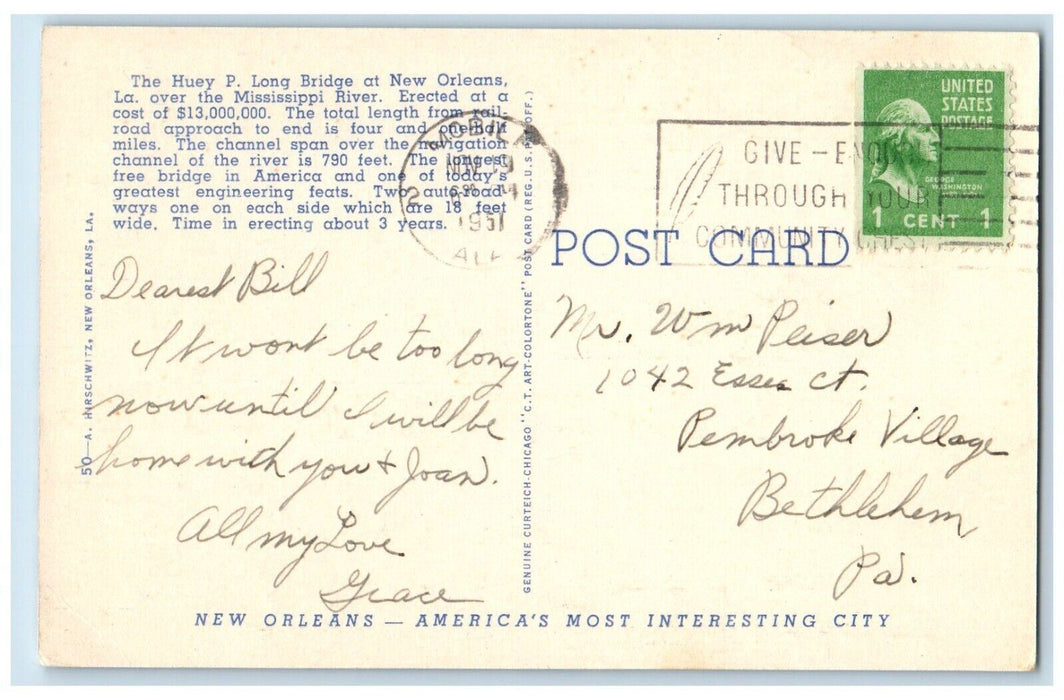 The Huey P. Long Bridge at New Orleans,
La. over the Mississippi River. Erected at a
cost of $13,000,000. The total length from rail-
road approach to end is four and one-half
miles. The channel span over the navigation
channel of the river is 790 feet. The longest
free bridge in America and one of today's
greatest engineering feats. Two auto-road-
ways one on each side which are 18 feet
wide. Time in erecting about 3 years.
50—A. HIRSCHWITZ, NEW ORLEANS, LA.
Dearest Bill
It wont be too long
now until I will be
home with you & Joan.
All my Love
Grace
GENUINE CURTEICH-CHICAGO "C.T. ART-COLORTONE" POST CARD (REG. U.S. PAT. OFF.)
MOBILE
19
1951
2
ALA
GIVE – ENOUGH
THROUGH YOUR
COMMUNITY CHEST
UNITED
STATES
POSTAGE
GEORGE
WASHINGTON
1 CENT 1
POST CARD
Mr. Wm Peiser
1042 Essex ct.
Pembroke Village
Bethlehem
Pa.
NEW ORLEANS — AMERICA'S MOST INTERESTING CITY